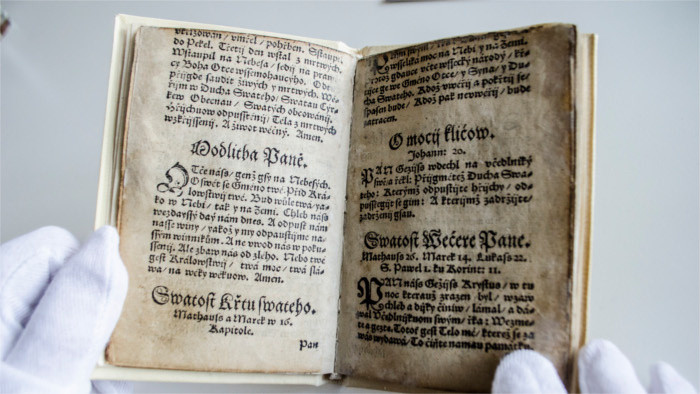 vkřižowan / vmřel / pohřben. Sstaupil
do Pekel. Třetij den wstal z mrtwých,
Wstaupil na Nebesa / sedij na prawicy
Boha Otce wssemohaucyho. Odtud
přijgde saudit žiwých y mrtwých. Wěřijm
w Ducha Swateho / Swatau Cyrkew
Obecnau / Swatých obcowánij.
Hřijchuow odpusstěnij / Těla z mrtwých
wzkřijssenij. A žiwot wěčný. Amen.
Modlitba Paně.
OTče náss / genž gsy na Nebesých.
Oswět se Gméno twé. Přiď Králowstwij
twé. Buď wůle twa / yako
w Nebi / tak y na Zemi. Chléb náss
wezdayssý day nám dnes. A odpust nám
nasse winy / yakož y my odpaustijme nassým
winnikům. A ne vwod nás w pokussenij.
Ale zbaw nás od zlého. Nebo twé
gest Kralowstwij / twá moc / twá sláwa /
na wěky wěkuow. Amen.
Swatost Křtu swateho.
Mathauss a Marek w 16.
Kapitole.
Pan
wsselika moc na Nebi y na Zemi.
gdauce včte wssecky národy / křtijce
ge we Gméno Otce / y Syna / y Ducha
Swateho. Kdož vwěřij a pokřtij se /
spasen bude / Kdož pak nevwěřij / bude
zatracen.
O mocij kličow.
Johann: 20.
PAN Gežijss wdechl na včedlnijky
swé a řekl: Přijgmětež Ducha Swateho:
Kterýmž odpustijte hřijchy / odpusstěgij
se gim: A kterijmž zadržijte /
zadržánij gsau.
Swatost Wečere Paně.
Mathauss 26. Marek 14. Lukass 22.
S. Pawel 1. ku Korint: 11.
PAN náss Gežijss Krystus / w tu
noc kterauž zrazen byl / wzaw
Chléb a dijky činiw / lámal a dáwal
Včedlnijkuom swým / řka: Wezměte
a gezte. Totoť gest Tělo mé / kteréž se za
wás wydáwá / To čiňte na mau památku.